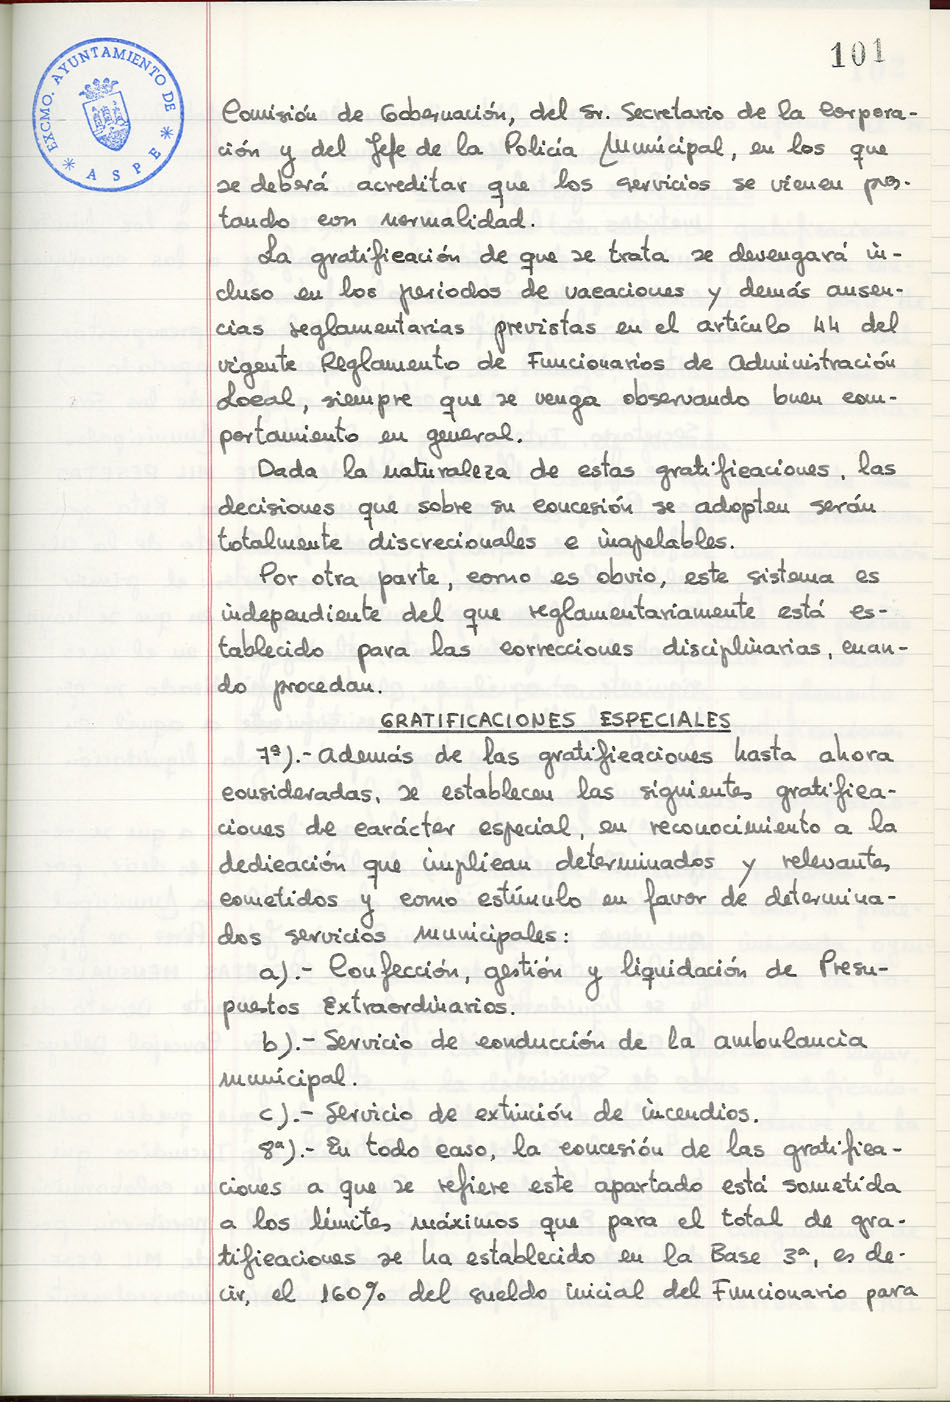 101
EXCMO. AYUNTAMIENTO DE
* ASPE *
Comisión de Gobernación, del Sr. Secretario de la Corpora-
ción y del Jefe de la Policía Municipal, en los que
se deberá acreditar que los servicios se vienen pres-
tando con normalidad.
La gratificación de que se trata se devengará in-
cluso en los períodos de vacaciones y demás ausen-
cias reglamentarias previstas en el artículo 44 del
vigente Reglamento de Funcionarios de Administración
Local, siempre que se venga observando buen com-
portamiento en general.
Dada la naturaleza de estas gratificaciones, las
decisiones que sobre su concesión se adopten serán
totalmente discrecionales e inapelables.
Por otra parte, como es obvio, este sistema es
independiente del que reglamentariamente está es-
tablecido para las correcciones disciplinarias, cuan-
do procedan.
GRATIFICACIONES ESPECIALES
7ª).- Además de las gratificaciones hasta ahora
consideradas, se establecen las siguientes gratifica-
ciones de carácter especial, en reconocimiento a la
dedicación que implican determinados y relevantes
cometidos y como estímulo en favor de determina-
dos servicios municipales:
a).- Confección, gestión y liquidación de Presu-
puestos Extraordinarios.
b).- Servicio de conducción de la ambulancia
municipal.
c).- Servicio de extinción de incendios.
8ª).- En todo caso, la concesión de las gratifica-
ciones a que se refiere este apartado está sometida
a los límites máximos que para el total de gra-
tificaciones se ha establecido en la Base 3ª, es de-
cir, el 160% del sueldo inicial del Funcionario para